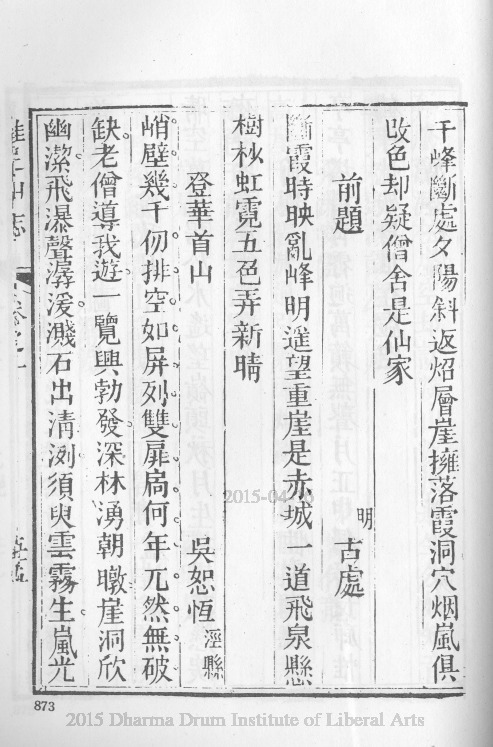 千峰斷處夕陽斜返炤層崖擁落霞洞穴烟嵐俱
改色却疑僧舍是仙家
前題 明 古處
斷霞時映亂峰明遥望重崖是赤城一道飛泉懸
樹杪虹霓五色弄新晴
登華首山 吳恕恆 涇縣
峭壁幾千仞排空如屏列雙扉扃何年兀然無破
缺老僧導我遊一覽興勃發深林湧朝暾崖洞欣
幽潔飛瀑聲潺湲濺石出清洌須臾雲霧生嵐光
雞足山志 卷之
873
2015-04-
2015 Dharma Drum Institute of Liberal Arts